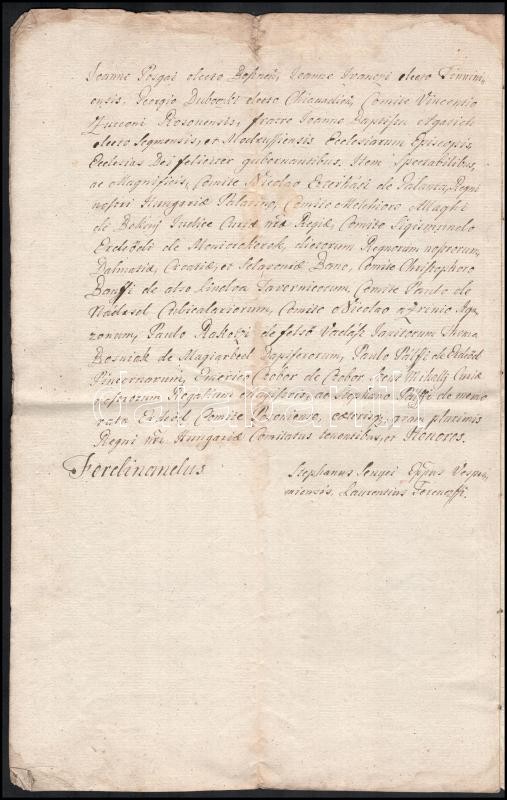 Joanne Posgai electo Bosnen, Joanne Ivanczi electo Tinnini-
ensis. Georgio Dubovszki electo Chianadien, Comite Vincentio
Zucconi Rosonensis, fratre Joanne Baptista Agatich
electo Segniensis, et Modrussiensis Ecclesiarum Episcopis,
Ecclesias Dei feliciter gubernantibus. Item Spectabilibus,
ac Magnificis, Comite Nicolao Eszterhási de Galanta, Regni
nostri Hungariæ Palatino, Comite Melchiore Allaghi
de Bekini Judice Curiæ nræ Regiæ, Comite Sigismundo
Erdeődi de Monioroherek, dictorum Regnorum nostrorum,
Dalmatiæ, Croatiæ, et Sclavoniæ Bano, Comite Christophoro
Banffi de also Lindva Tavernicorum, Comite Paulo de
Nádasd Cubiculariorum, Comite Nicolao a Zrinio Aga-
zonum, Paulo Rakoczi de felső Vadász Janitorum Thoma
Bosniak de Magiarbell Dapiferorum, Paulo Pálffi de Erdőd
Pincernarum, Emerico Czobor de Czobor Szent Mihally Curiæ
nostrorum Regalium Magistris, ac Stephano Palffi de memo-
rata Erdőd Comite Posoniensi, cæterisq, quam plurimis
Regni nri Hungariæ Comitatus tenentibus, et Honores.
Ferdinandus
Stephanus Senyei Eppus Vespri-
miensis, Laurentius Ferenczffi.